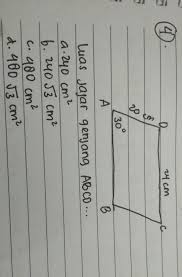 4.
D
C
20 cm
24 cm
30°
A
B
Luas jajar genjang ABCD...
a. 240 cm²
b. 240 √3 cm²
c. 480 cm²
d. 480 √3 cm²